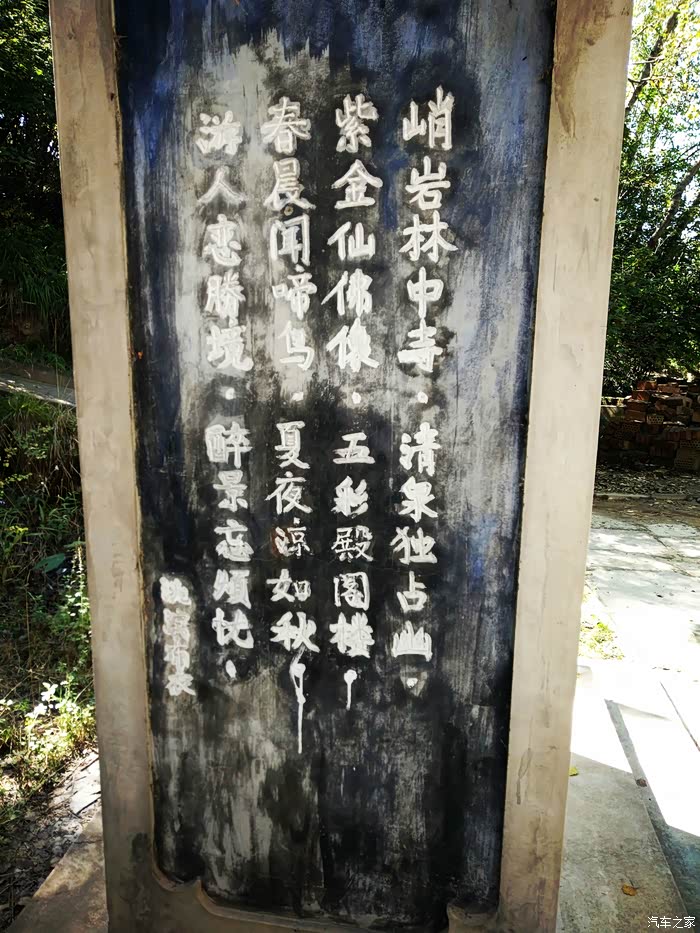 峭岩林中寺.清泉独占幽.
紫金仙佛像.五彩殿阁楼.
春晨闻啼鸟.夏夜凉如秋.
游人恋胜境.醉景忘烦忧.
布衣
汽车之家